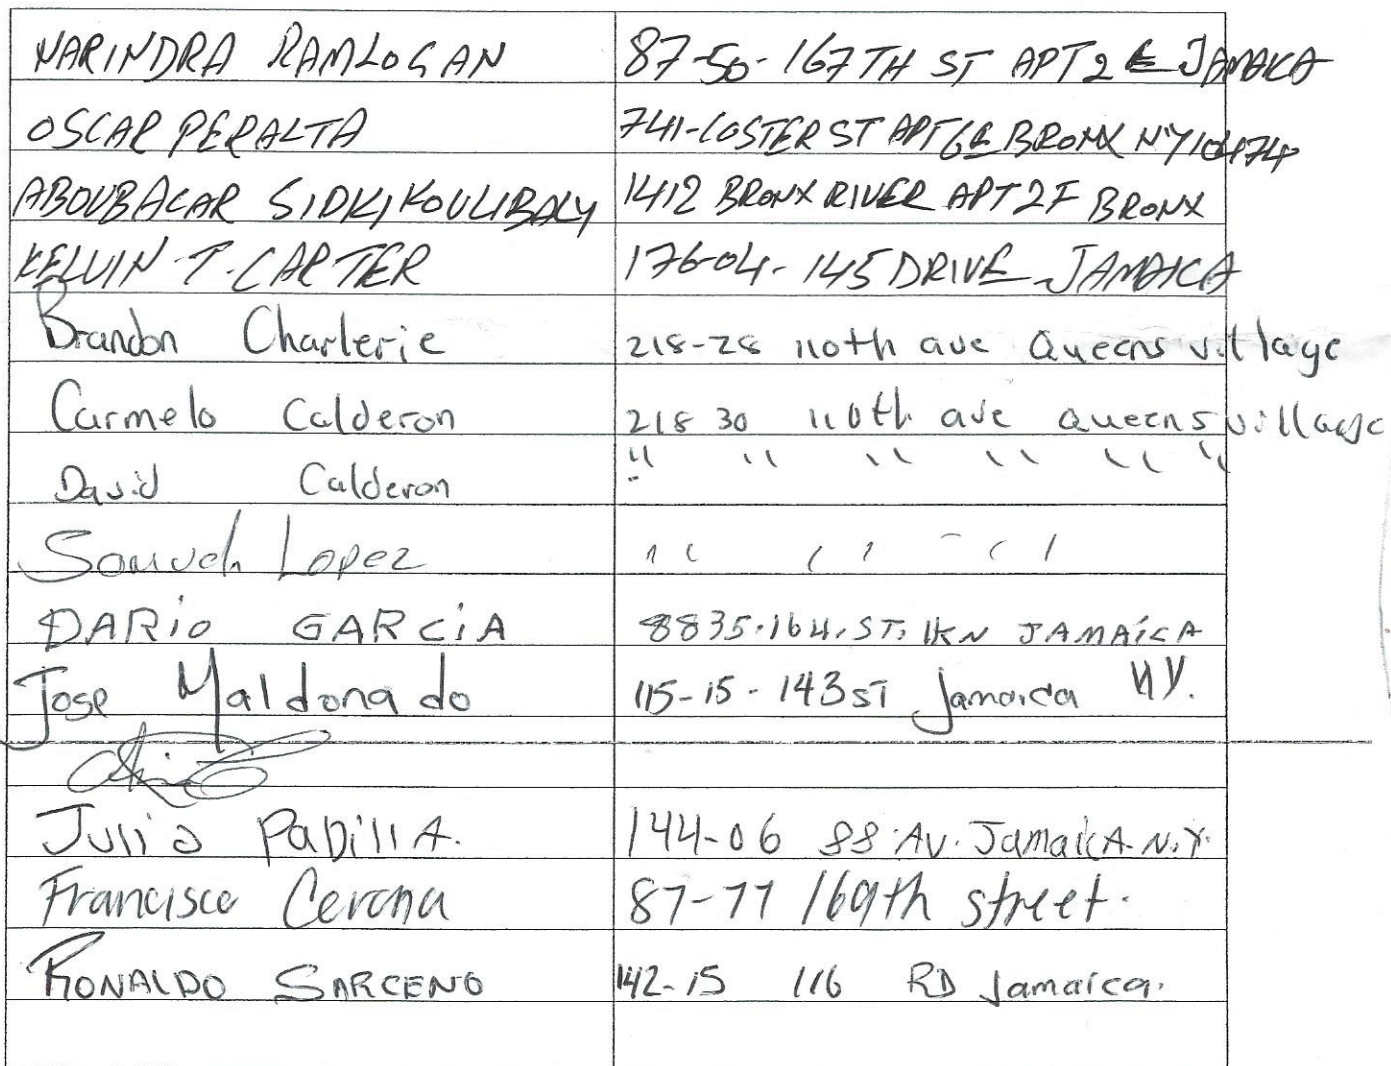 NARINDRA RAMLOGAN 87-50-167TH ST APT 2 E JAMAKA
OSCAR PERALTA 741-COSTER ST APT 6E BRONX N'Y 10474
ABOUBACAR SIDKI KOULIBALY 1412 BRONX RIVER APT 2F BRONX
KELVIN T. CARTER 176-04-145 DRIVE JAMAICA
Brandon Charlerie 218-28 110th ave Queens village
Carmelo Calderon 218 30 110th ave Queens village
David Calderon " " " " " "
Samuel Lopez " " " "
DARio GARCiA 8835.164.ST. JAMAíCA
Jose Maldonado 115-15-143 ST Jamaica NY.
Julia PaDillA. 144-06 88 Av. JamaicA. N.Y.
Francisco Cerona 87-77 169th street.
RONALDO SARCENO 142-15 116 RD Jamaica.